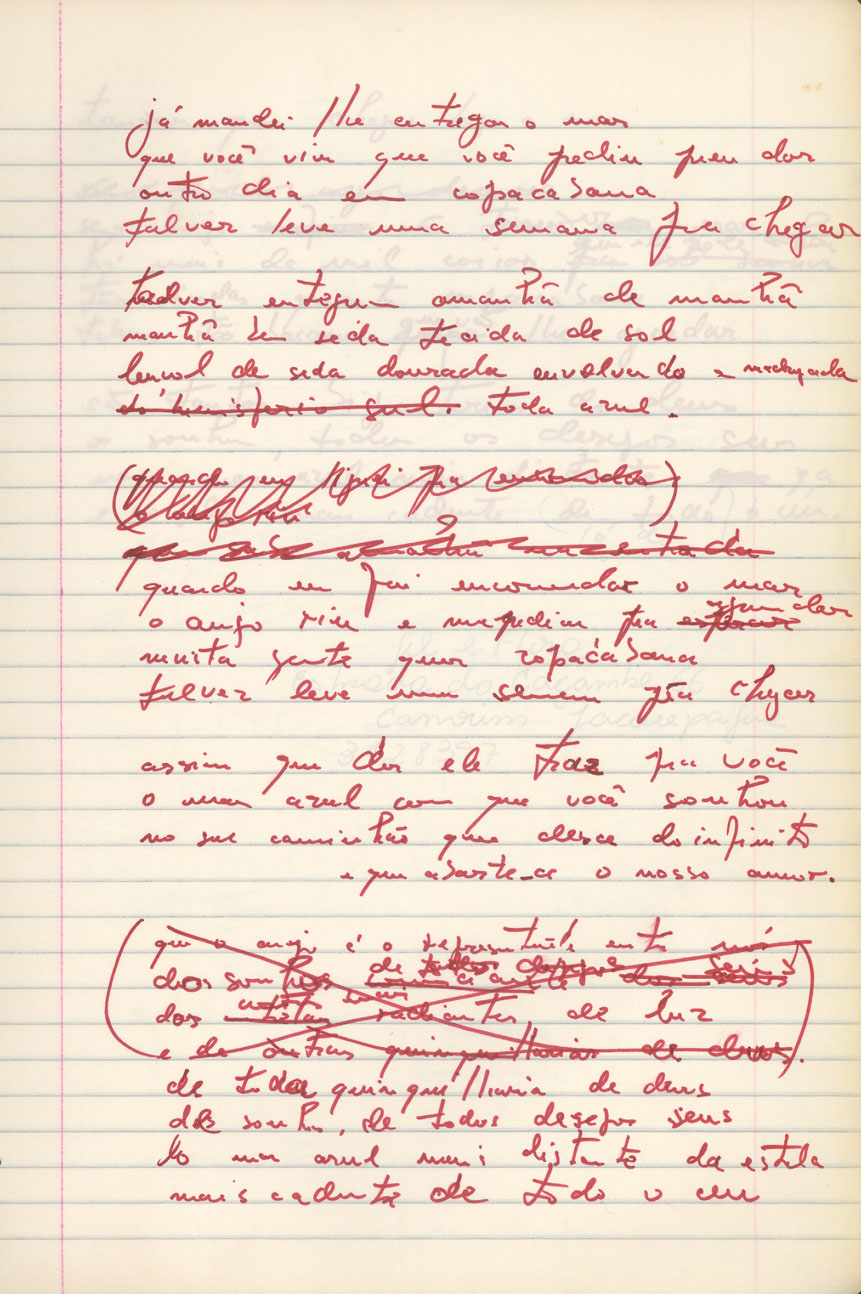 já mandei lhe entregar o mar
que você viu que você pediu preu dar
outro dia em copacabana
talvez leve uma semana pra chegar
talvez entreguem amanhã de manhã
manhã em seda tecida de sol
lençol de seda dourada envolvendo a madrugada
do hemisferio sul. toda azul.
quando eu fui encomendar o mar
o anjo riu e me pediu pra esperar aguardar
muita gente quer copacabana
talvez leve uma semana pra chegar
assim que der ele traz pra você
o mar azul com que você sonhou
no seu caminhão que desce do infinito
e que abastece o nosso amor.
que o anjo é o representante entre nós
dos sonhos de todos desejos dos seres
dos radiantes de luz
e de outras quinquilharias de deus.
de toda quinquilharia de deus
dos sonhos, de todos desejos seus
do mar azul mais distante da estrela
mais cadente de todo o céu